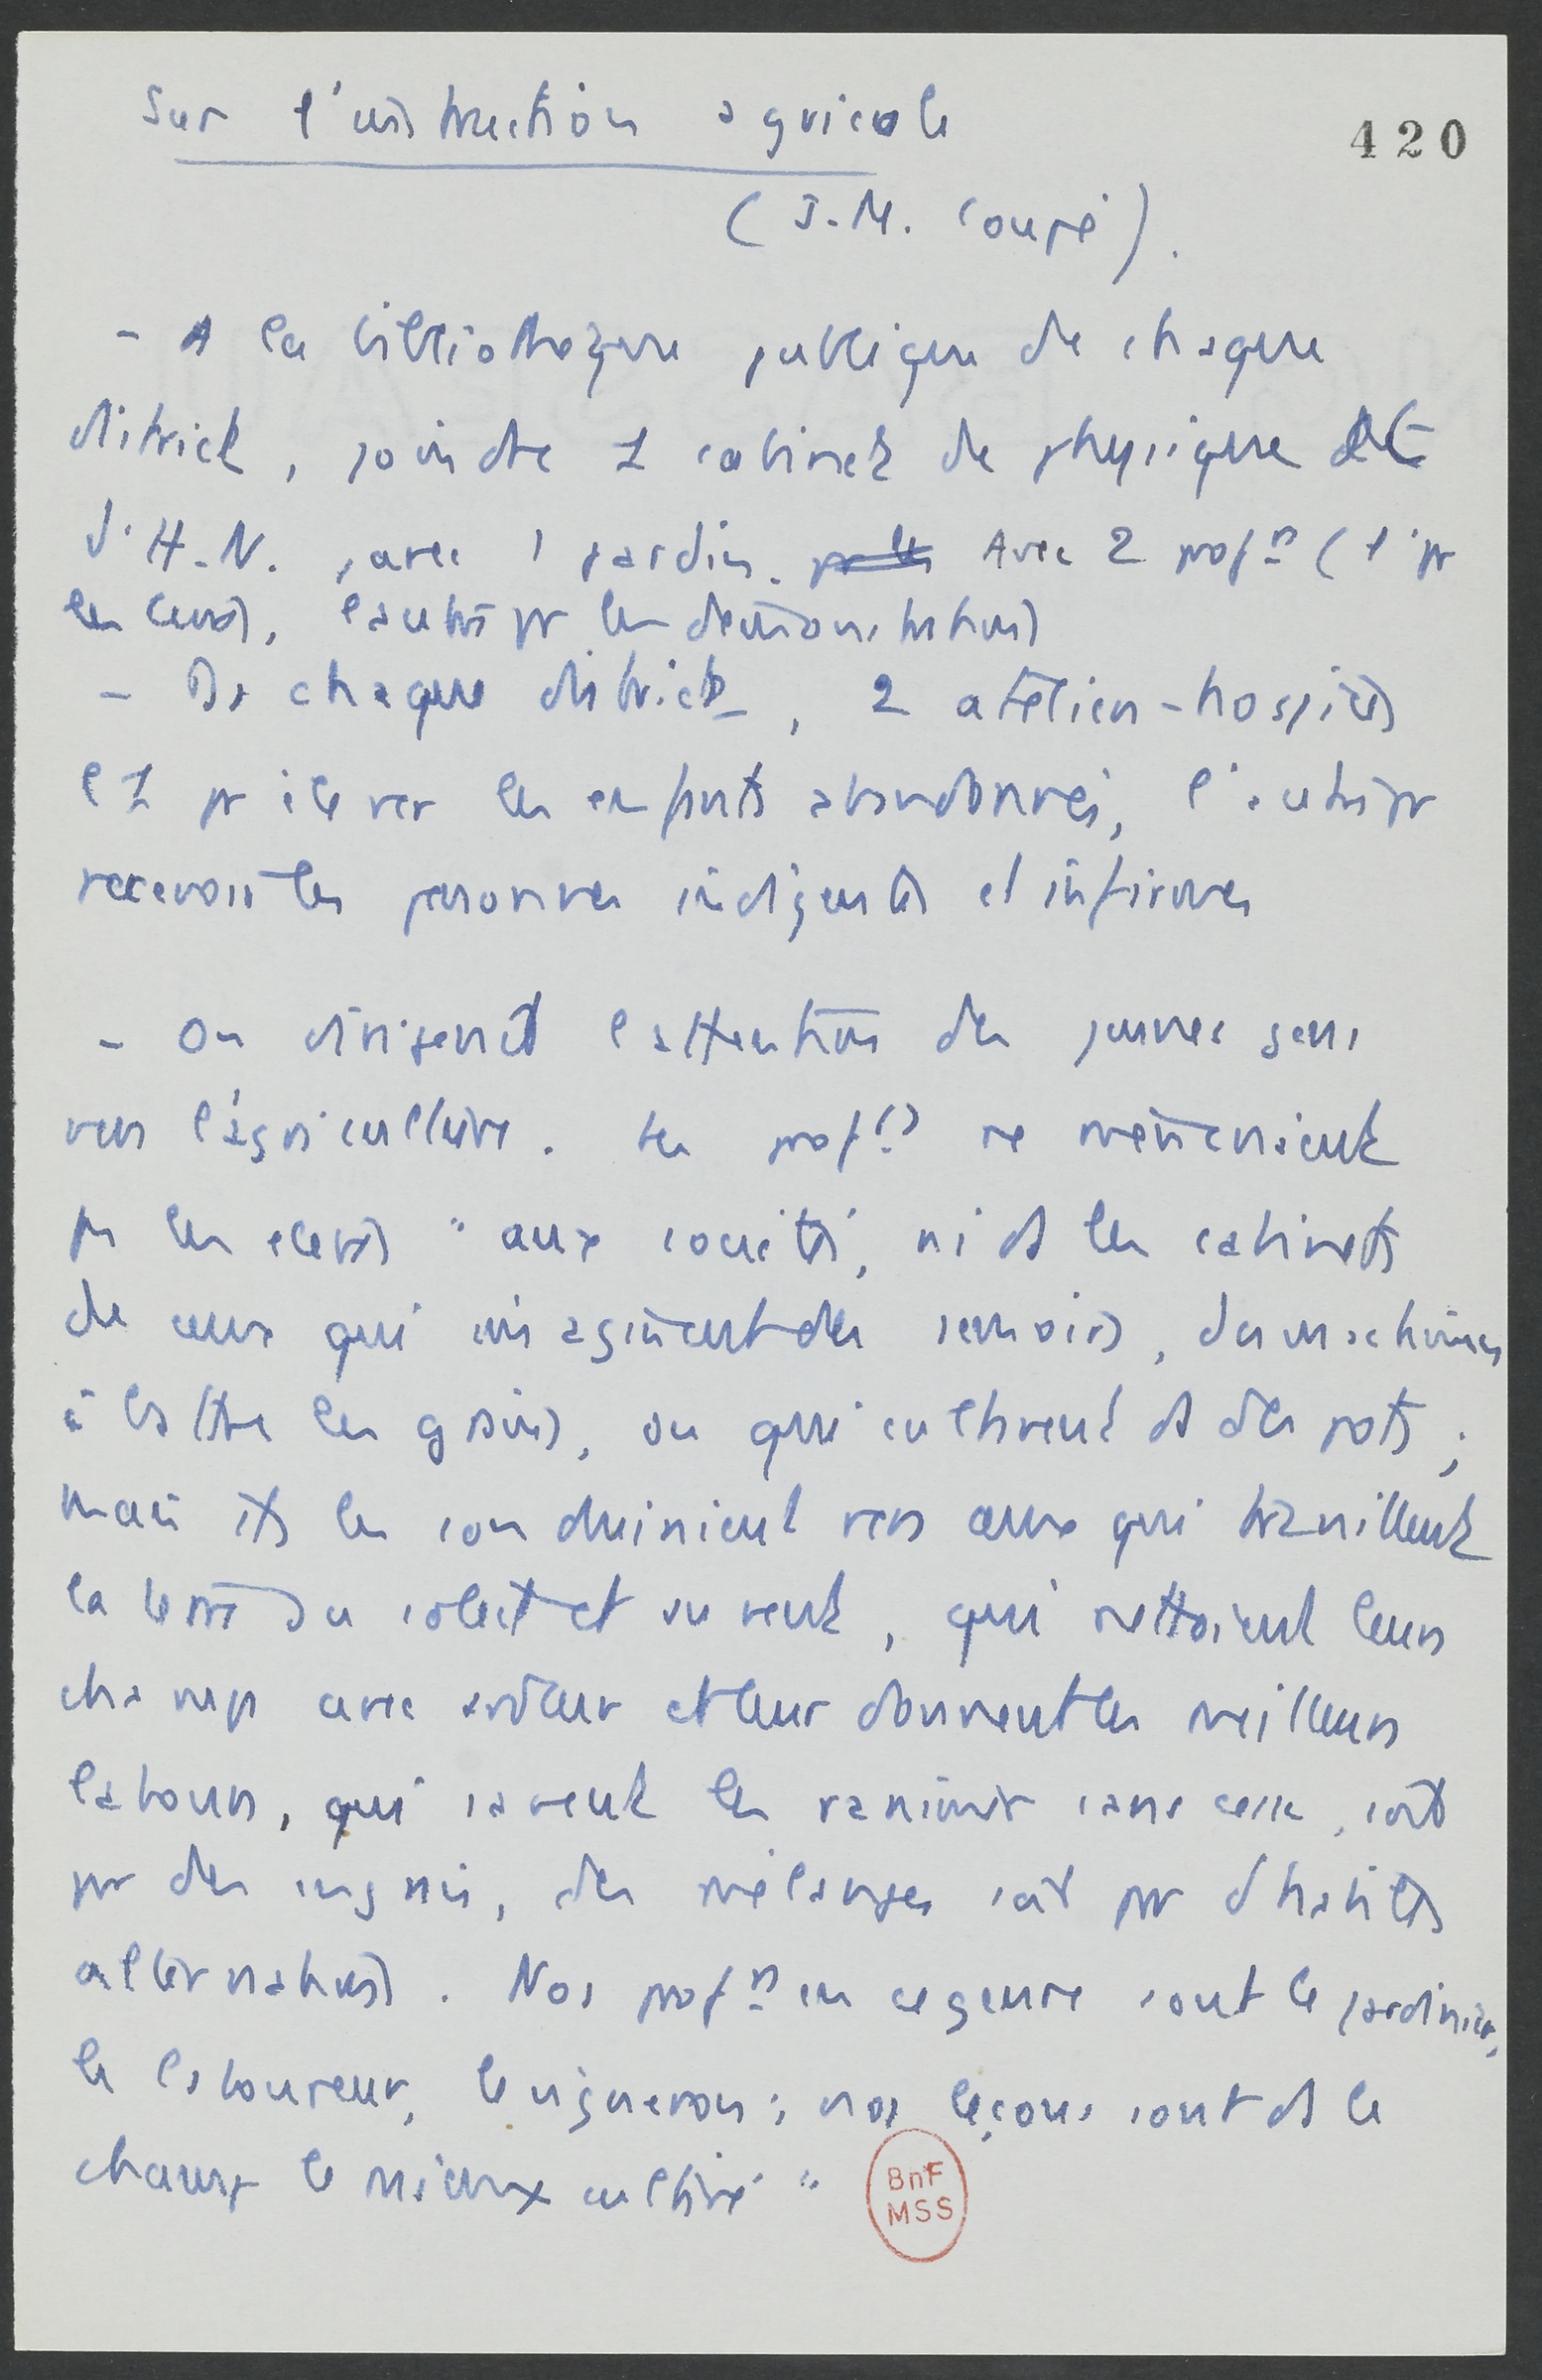 Sur l'instruction agricole
420
(J.-M. Coupé).
- A la bibliothèque publique de chaque
district, joindre 1 cabinet de physique et
d'H.N., avec 1 jardin. pr les Avec 2 profrs (l'1 pr
les cours, l'autre pr les démonstrations
- Ds chaque district, 2 ateliers-hospices
l'1 pr élever les enfants abandonnés, l'autre pr
recevoir les personnes indigentes et infirmes
- On dirigerait l'attention des jeunes gens
vers l'agriculture. Les profrs ne mèneraient
pas les élèves "aux sociétés, ni ds les cabinets
de ceux qui imaginent des semoirs, des machines
à battre les grains, ou qui cultivent ds des pots ;
mais ils les conduiraient vers ceux qui travaillent
la terre au soleil et au vent, qui nettoient leurs
champs avec ardeur et leur donnent les meilleurs
labours, qui savent les ranimer sans cesse, soit
par des engrais, des mélanges soit par d'habiles
alternatives. Nos profrs en ce genre sont le jardinier,
le laboureur, le vigneron ; nos leçons sont ds le
champ le mieux cultivé"
BnF
MSS